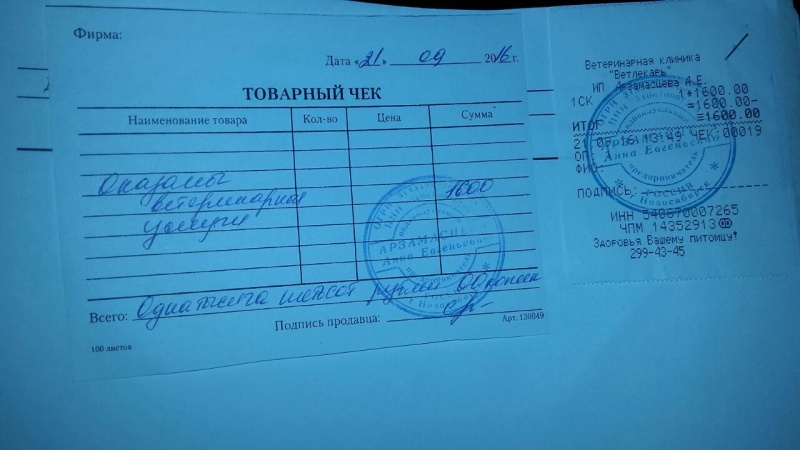 Фирма:
Дата «21» 09 2016г.
ТОВАРНЫЙ ЧЕК
Наименование товара Кол-во Цена Сумма
Оказаны
ветеринарные 1600
услуги
Всего: Одна тысяча шестьсот рублей 00 копеек
Подпись продавца:
100 листов Арт. 130049
АРЗАМАСЦЕВА
Анна Евгеньевна
предприниматель
г. Новосибирск
Ветеринарная клиника
"Ветлекарь"
ИП Арзамасцева А.Е.
1СК 1*1600.00
=1600.00
ИТОГ ≡1600.00
21-09-16 13:49 ЧЕК 00019
ОП
ФИО:
Анна Евгеньевна
предприниматель
ПОДПИСЬ:
РОССИЯ
г. Новосибирск
ИНН 540670007265
ЧПМ 14352913
Здоровья Вашему питомцу!
299-43-45